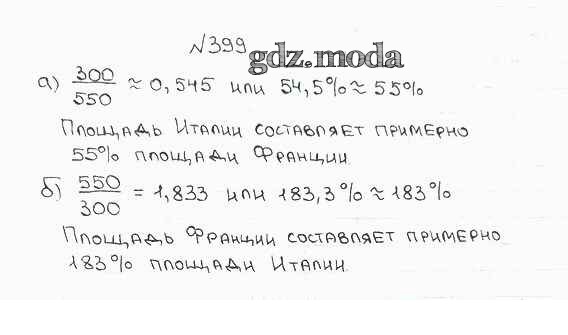 №399
gdz.moda
а) 300/550 ≈ 0,545 или 54,5% ≈ 55%
Площадь Италии составляет примерно
55% площади Франции.
б) 550/300 = 1,833 или 183,3% ≈ 183%
Площадь Франции составляет примерно
183% площади Италии.